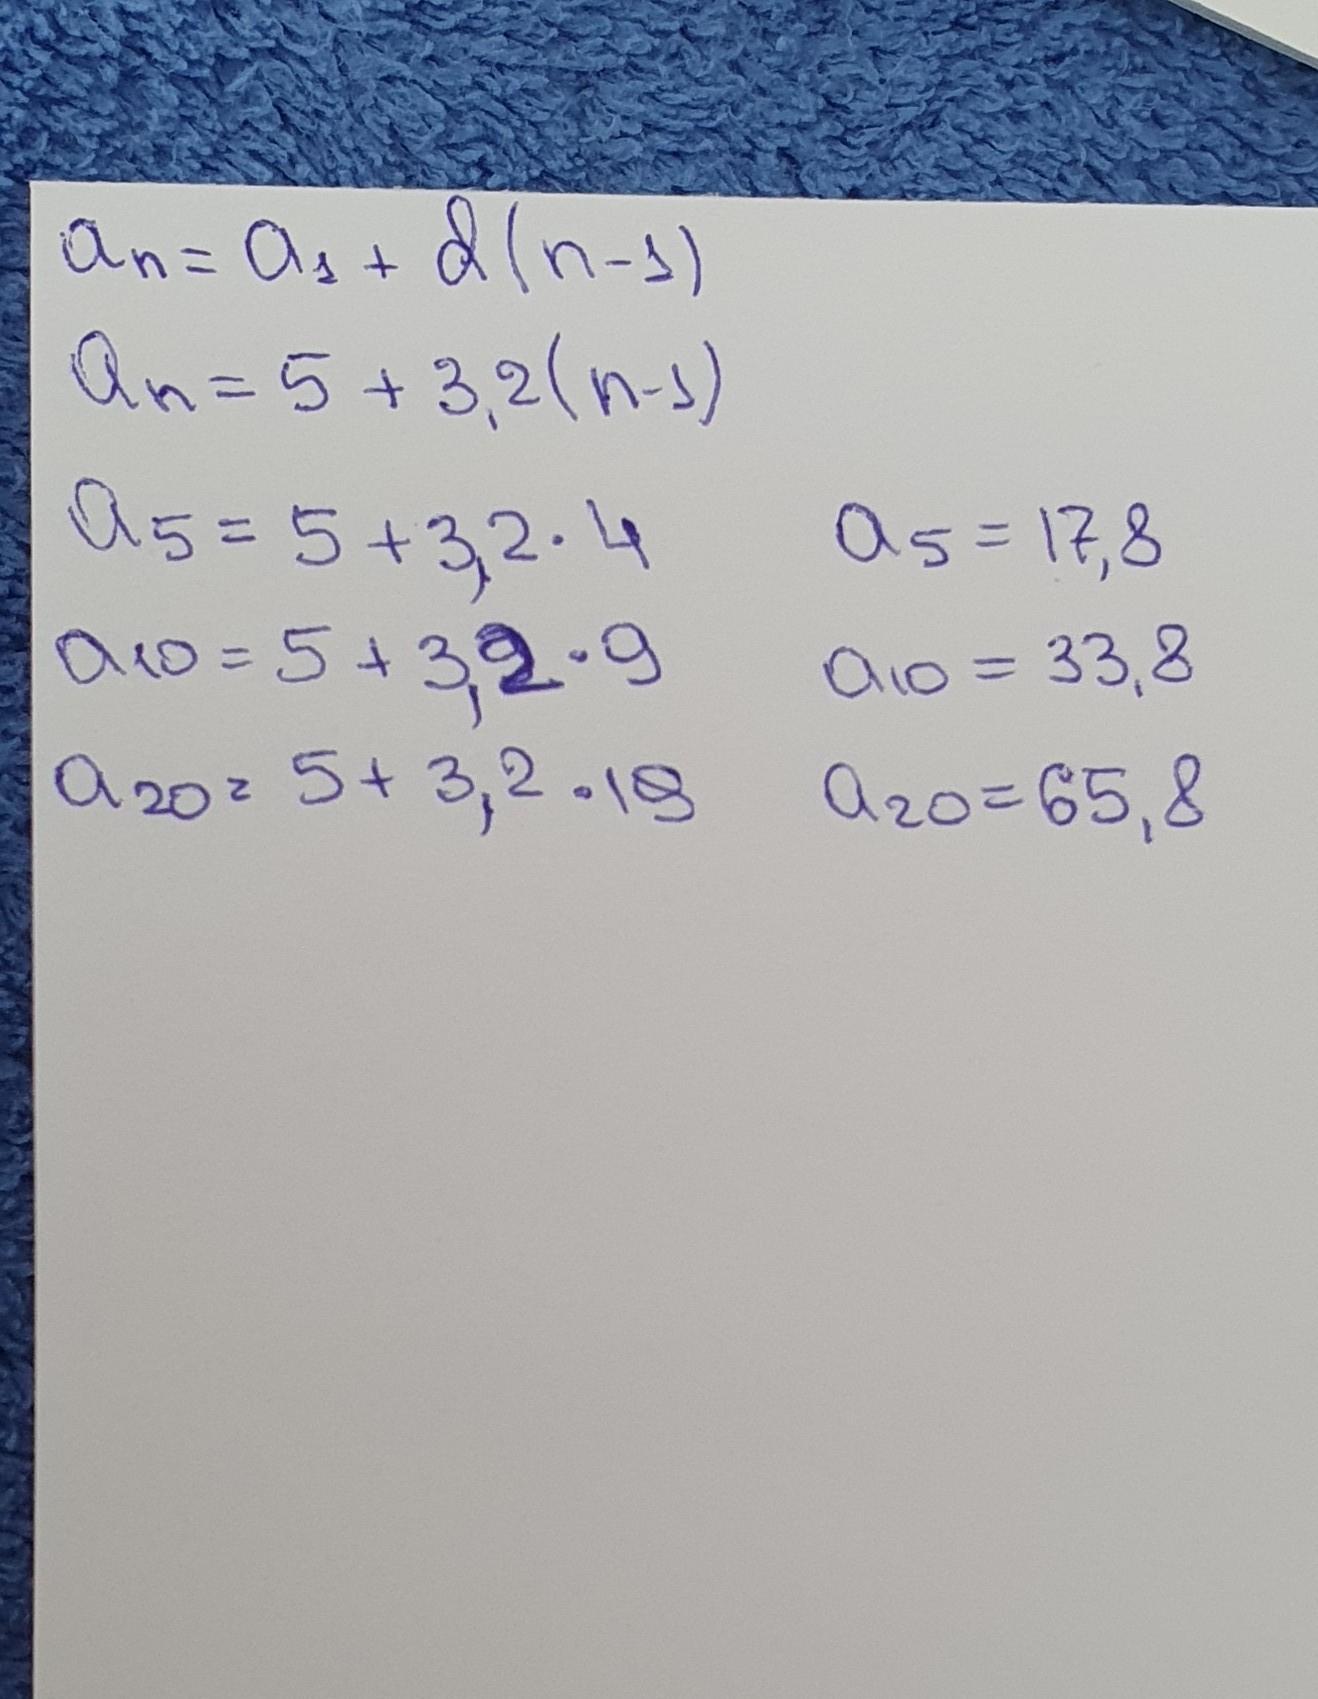 an = a1 + d(n-1)
an = 5 + 3,2(n-1)
a5 = 5 + 3,2 · 4 a5 = 17,8
a10 = 5 + 3,2 · 9 a10 = 33,8
a20 = 5 + 3,2 · 19 a20 = 65,8